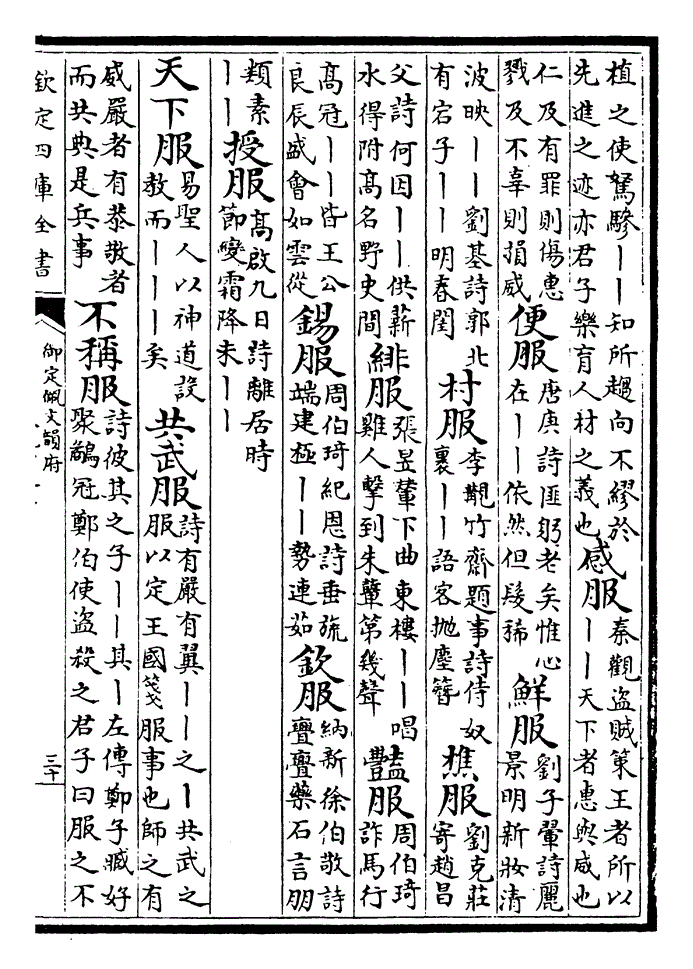 植之使駑驂丨丨知所趨向不繆於
先進之迹亦君子樂育人材之義也
感服
秦觀盜賊策王者所以
丨丨天下者惠與威也
仁及有罪則傷惠
戮及不辜則損威
便服
唐庚詩匪躬老矣惟心
在丨丨依然但髮稀
鮮服
劉子翬詩麗
景明新妝清
波映丨丨劉基詩郭北
有宕子丨丨明春閨
村服
李覯竹齋題事詩侍奴
裏丨丨語客拋麈簪
樵服
劉克莊
寄趙昌
父詩何因丨丨供薪
水得附髙名野史間
緋服
張昱輦下曲東樓丨丨唱
雞人擊到朱鼙第幾聲
豔服
周伯琦
詐馬行
髙冠丨丨皆王公
良辰盛會如雲從
錫服
周伯琦紀恩詩垂旒
端建極丨丨勢連茹
欽服
納新徐伯敬詩
亹亹藥石言朋
類素
丨丨
授服
髙啟九日詩離居時
節變霜降未丨丨
天下服
易聖人以神道設
教而丨丨丨矣
共武服
詩有嚴有翼丨丨之丨共武之
服以定王國箋服事也師之有
威嚴者有恭敬者
而共典是兵事
不稱服
詩彼其之子丨丨其丨左傳鄭子臧好
聚鷸冠鄭伯使盜殺之君子曰服之不
欽定四庫全書
御定佩文韻府
三十